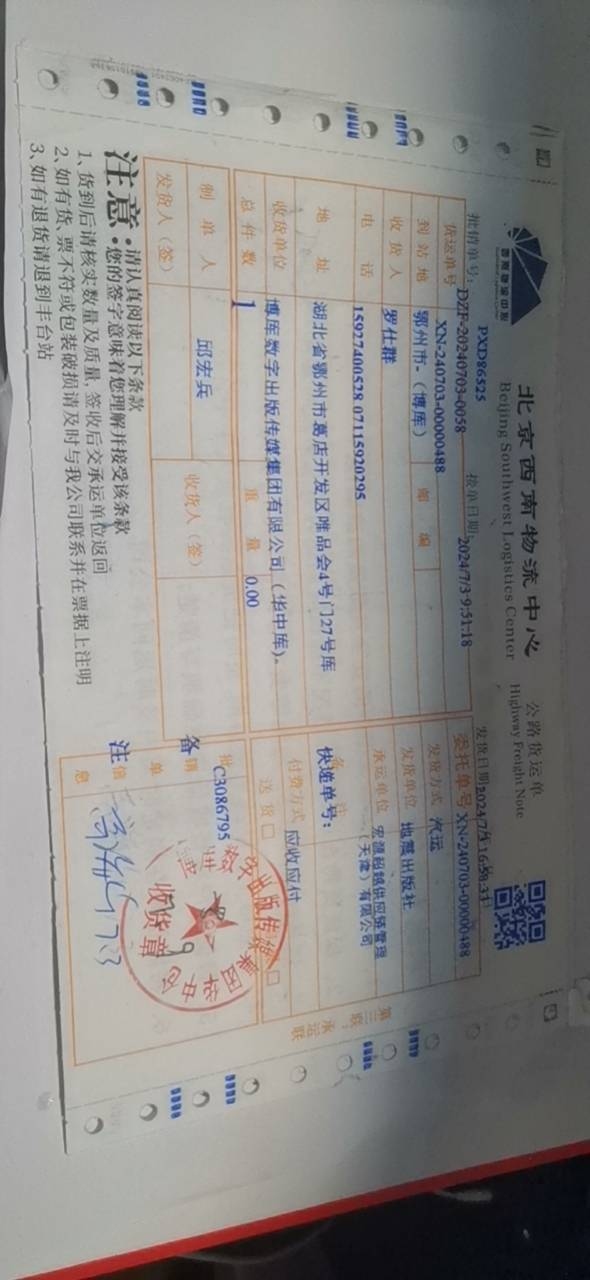 北京西南物流中心
Beijing Southwest Logistics Center
公路货运单
Highway Freight Note
PXD86525
批销单号：DZP-20240703-0058
接单日期：2024/7/3 9:51:18
货运单号 XN-240703-00000488
委托单号 XN-240703-00000488
到站地 鄂州市-（博库） 邮编
发货方式 汽运
收货人 罗仕群
发货单位 地震出版社
电话 15927400528 07115920295
承运单位 宏源超越供应链管理（天津）有限公司
地址 湖北省鄂州市葛店开发区唯品会4号门27号库
备注
快递单号：
收货单位 博库数字出版传媒集团有限公司（华中库）。
付费方式 应收应付
总件数 1 重量 0.00
送货 □
制单人 邱宏兵 收货人（签）
发货人（签）
批销单信息
C3086795
备注
收货章
第三联：承运联
注意
·请认真阅读以下条款
·您的签字意味着您理解并接受该条款
1、货到后请核实数量及质量，签收后交承运单位返回
2、如有货、票不符或包装破损请及时与我公司联系并在票据上注明
3、如有退货请退到丰台站